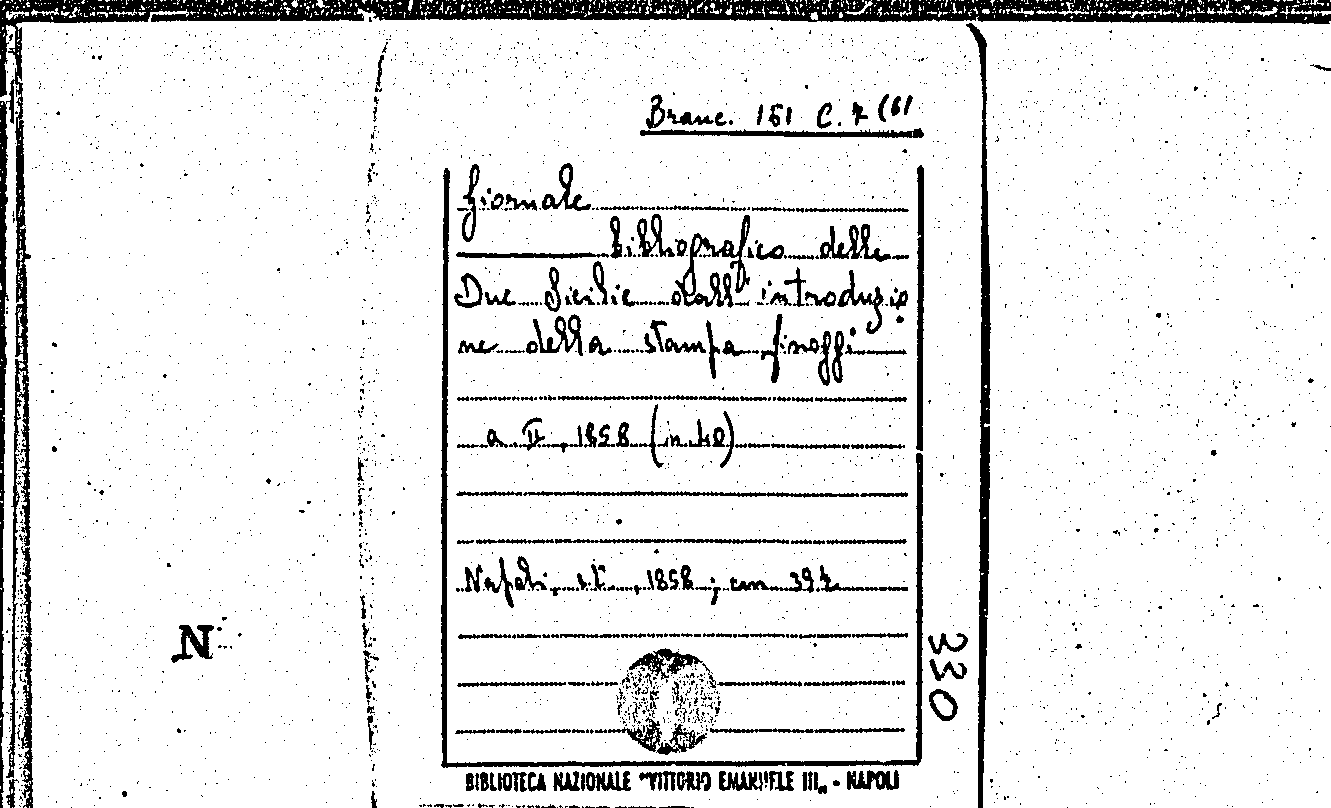 Branc. 151 C. 7 (6)
Giornale
bibliografico delle
Due Sicilie dall'introduzio
ne della stampa finoggi
a. II, 1858 (n. 40)
Napoli, s.t., 1858; cm
330
N
BIBLIOTECA NAZIONALE "VITTORIO EMANUELE III„ - NAPOLI